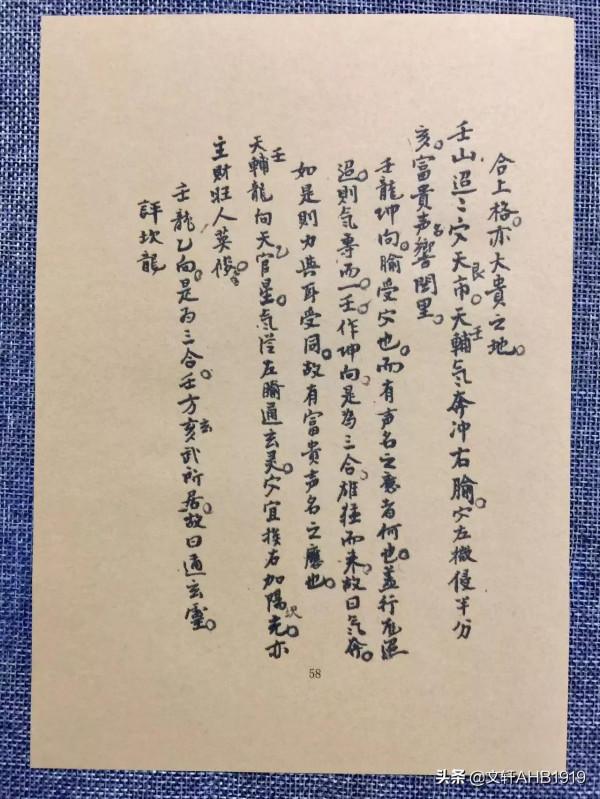 合上格。亦大貴之地。
壬山迢〻穴天市。天輔气奔冲右腧。穴左微侵半分
艮
壬
亥。富貴声名響閭里。
壬龍坤向。腧受穴也。而有声名之應者何也。蓋行龙迢
迢。則气專而一。壬作坤向。是為三合。雄猛而来。故曰气奔。
如是則力與耳受同。故有富貴声名之應也。
天輔龍向天官星。气從左腧通玄灵。穴宜挨右加陽光。亦
壬
乙
主財旺人英俊。
壬龍乙向。是为三合。壬方亥玄武所居。故曰通玄靈。
評坎龍
58
头条 @文轩AHB1919